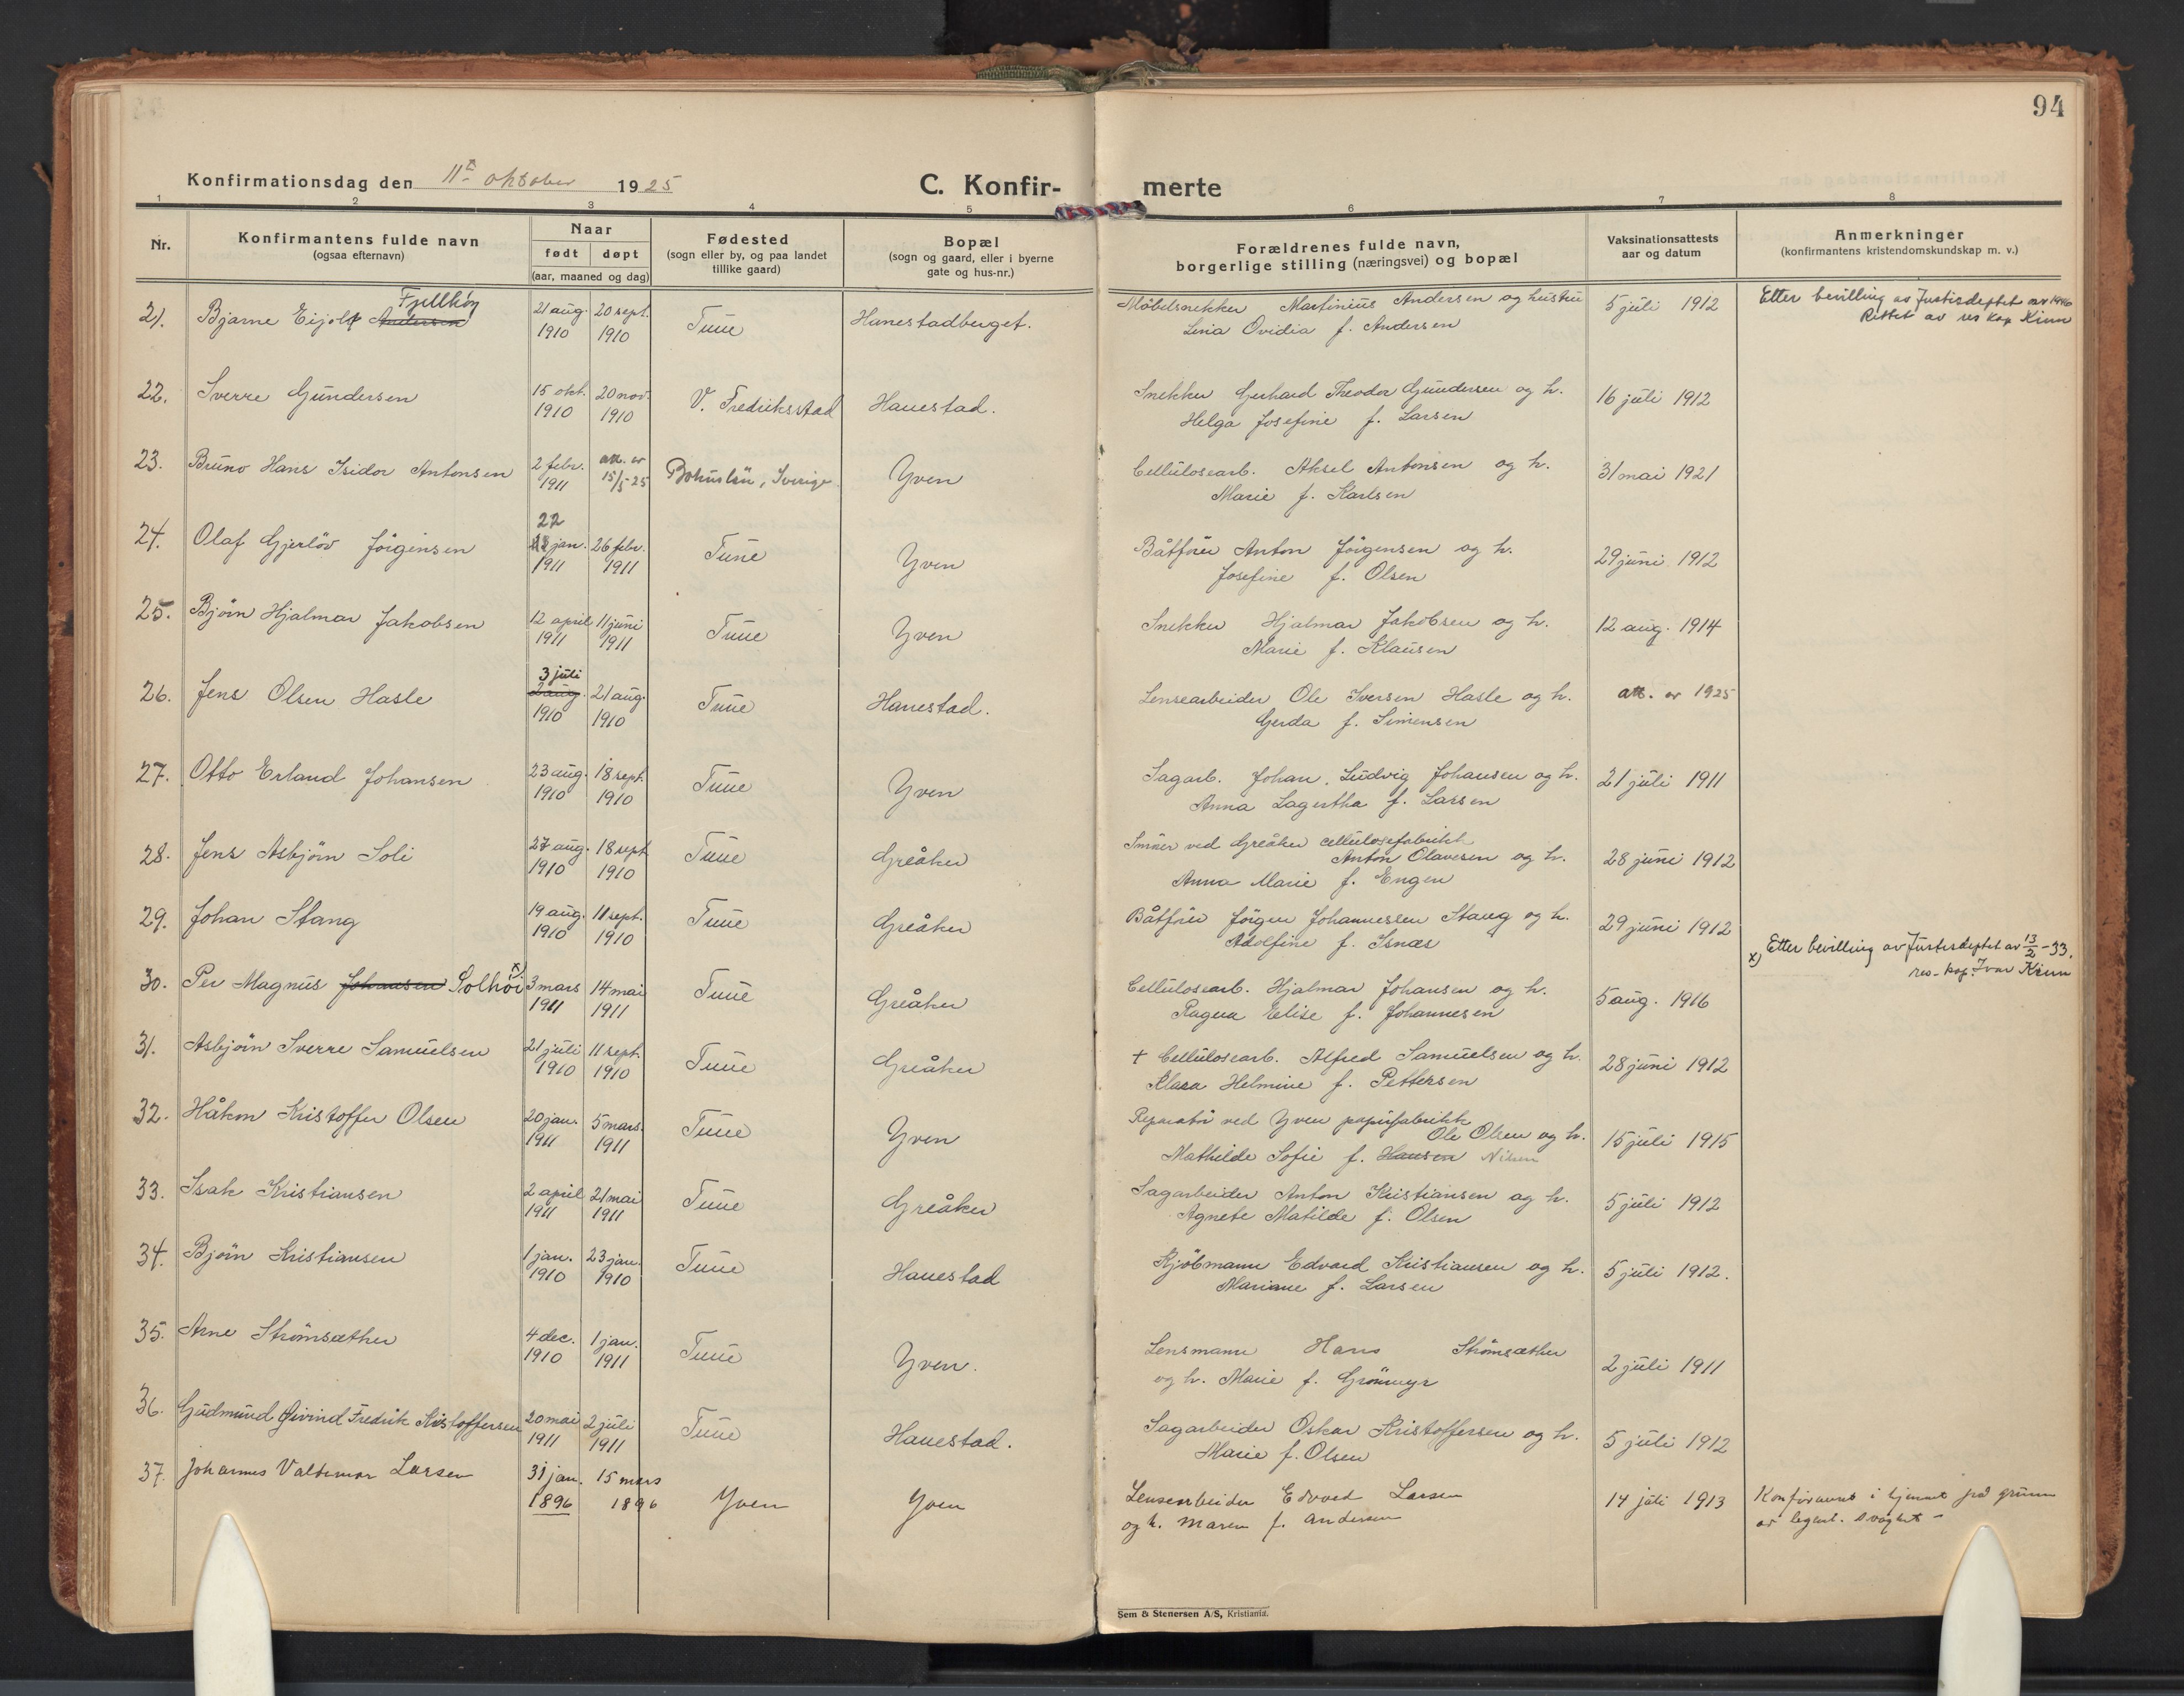 94
Konfirmationsdag den 11te oktober 1925
C. Konfir- merte
1 2 3 4 5 6 7 8
Nr.
Konfirmantens fulde navn
(ogsaa efternavn)
Naar
født døpt
(aar, maaned og dag)
Fødested
(sogn eller by, og paa landet
tillike gaard)
Bopæl
(sogn og gaard, eller i byerne
gate og hus-nr.)
Forældrenes fulde navn,
borgerlige stilling (næringsvei) og bopæl
Vaksinationsattests
aar og datum
Anmerkninger
(konfirmantens kristendomskundskap m. v.)
Fjellhøy
21. Bjarne Eijolf Andersen 21 aug. 1910 20 sept. 1910 Tune Hanestadberget. Møbelsnekker Martinius Andersen og hustru 5 juli 1912 Etter bevilling av Justisdeptet av 1946
Lina Ovidia f. Andersen Rettet av res kap Kinn
22. Sverre Gundersen 15 okt. 1910 20 nov. 1910 V. Fredriksstad Hanestad. Snekker Gerhard Theodor Gundersen og h. 16 juli 1912
Helga Josefine f. Larsen
23. Bruno Hans Isidor Antonsen 2 febr. 1911 att. av 15/5 25 Bohuslän, Sverige. Yven Cellulosearb. Aksel Antonsen og h. 31 mai 1921
Marie f. Karlsen
22
24. Olaf Gjerløv Jörgensen jan. 1911 26 febr. 1911 Tune Yven Båtförer Anton Jörgensen og h. 29 juni 1912
Josefine f. Olsen
25. Björn Hjalmar Jakobsen 12 april 1911 11 juni 1911 Tune Yven Snekker Hjalmar Jakobsen og h. 12 aug. 1914
Marie f. Klausen
3 juli
26. Jens Olsen Hasle 2 aug. 1910 21 aug. 1910 Tune Hanestad. Lensearbeider Ole Iversen Hasle og h. att. av 1925
Gerda f. Simensen
27. Otto Erland Johansen 23 aug. 1910 18 sept. 1910 Tune Yven Sagarb. Johan Ludvig Johansen og h. 21 juli 1911
Anna Lagertha f. Larsen
28. Jens Asbjörn Soli 27 aug. 1910 18 sept 1910 Tune Greåker Smörer ved Greåker cellulosefabrikk
Anton Olavesen og h. 28 juni 1912
Anna Marie f. Engen
29. Johan Stang 19 aug. 1910 11 sept. 1910 Tune Greåker Båtförer Jörgen Johannessen Stang og h. 29 juni 1912
Adolfine f. Isnæs
x) Etter bevilling av Justisdeptet av 13/2 - 33.
res-kap. Ivar Kinn
30. Per Magnus Johansen Solhöi x) 3 mars 1911 14 mai 1911 Tune Greåker Cellulosearb. Hjalmar Johansen og h. 5 aug. 1916
Ragna Elise f. Johannesen
31. Asbjörn Sverre Samuelsen 21 juli 1910 11 sept. 1910 Tune Greåker + Cellulosearb. Alfred Samuelsen og h. 28 juni 1912
Klara Helmine f. Pettersen
32. Håkon Kristoffer Olsen 20 jan. 1911 5 mars. 1911 Tune Yven Reparatör ved Yven papirfabrikk
Ole Olsen og h. 15 juli 1915
Mathilde Sofie f. Hansen Nilsen
33. Isak Kristiansen 2 april 1911 21 mai 1911 Tune Greåker Sagarbeider Anton Kristiansen og h. 5 juli 1912
Agnete Matilde f. Olsen
34. Björn Kristiansen 1 jan. 1910 23 jan. 1910 Tune Hanestad Kjöbmann Edvard Kristiansen og h. 5 juli 1912.
Mariane f. Larsen
35. Arne Strömsæther 4 dec. 1910 1 jan. 1911 Tune Yven. Lensmann Hans Strömsæther 2 juli 1911
og h. Marie f. Grönmyr
36. Gudmund Øivind Fredrik Kristoffersen 20 mai 1911 2 juli 1911 Tune Hanestad. Sagarbeider Oskar Kristoffersen og h. 5 juli 1912
Marie f. Olsen
37. Johannes Valdemar Larsen 31 jan. 1896 15 mars 1896 Yven Yven Lensearbeider Edvard Larsen 14 juli 1913 Konfirmert i hjemmet på grunn
og h. Maren f. Andersen av legeml. svaghet -
Sem & Stenersen A/S, Kristiania.